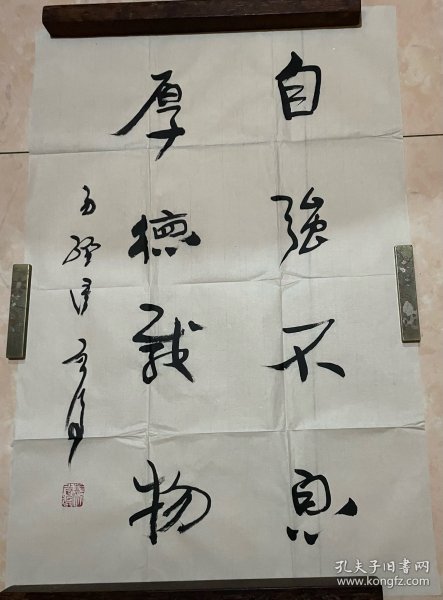 自強不息
厚德載物
易經語
孔夫子旧书网
www.kongfz.com